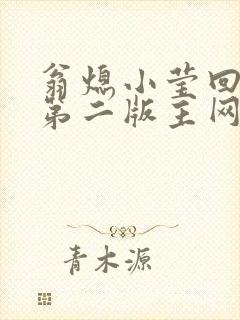 翁熄小莹回
第二版主网
青木源